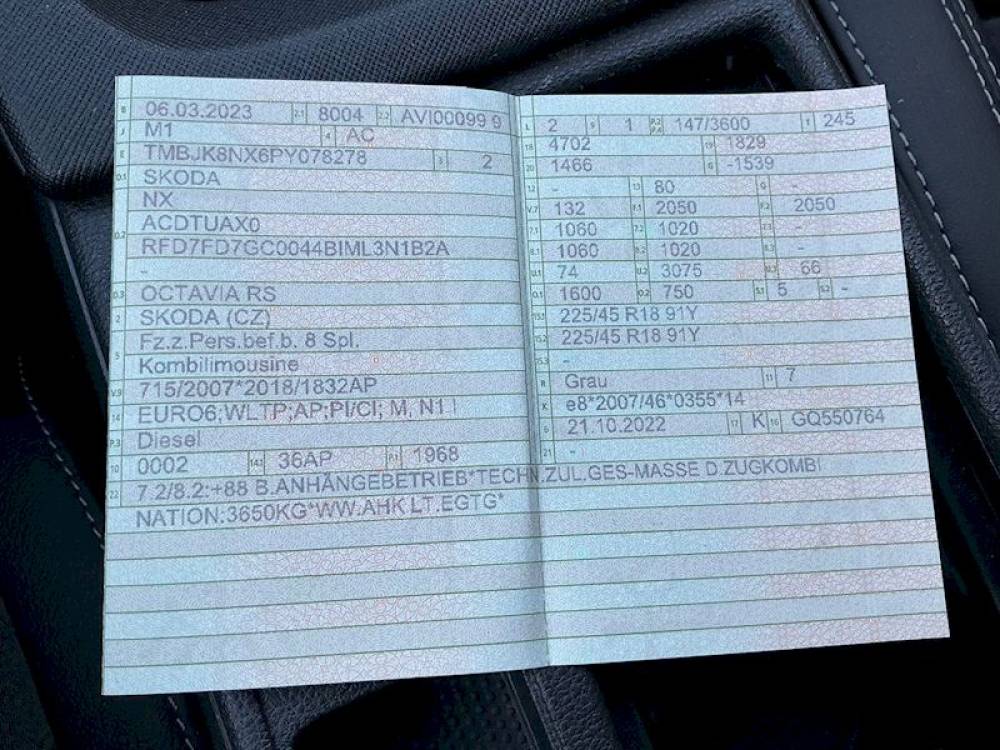 B 06.03.2023 2.1 8004 2.2 AVI00099 9
J M1 4 AC
E TMBJK8NX6PY078278 3 2
D.1 SKODA
NX
D.2 ACDTUAX0
RFD7FD7GC0044BIML3N1B2A
-
D.3 OCTAVIA RS
2 SKODA (CZ)
5 Fz.z.Pers.bef.b. 8 Spl.
Kombilimousine
V.9 715/2007*2018/1832AP
14 EURO6;WLTP;AP;PI/CI; M, N1 I
P.3 Diesel
10 0002 14.1 36AP P.1 1968
L 2 9 1 P.2 P.4 147/3600 T 245
18 4702 19 1829
20 1466 G -1539
12 - 13 80 Q -
V.7 132 F.1 2050 F.2 2050
7.1 1060 7.2 1020 7.3 -
8.1 1060 8.2 1020 8.3 -
U.1 74 U.2 3075 U.3 66
O.1 1600 O.2 750 S.1 5 S.2 -
15.1 225/45 R18 91Y
15.2 225/45 R18 91Y
15.3 -
R Grau 11 7
K e8*2007/46*0355*14
6 21.10.2022 17 K 16 GQ550764
21 -
22 7.2/8.2:+88 B.ANHÄNGEBETRIEB*TECHN.ZUL.GES-MASSE D.ZUGKOMBI
NATION:3650KG*WW.AHK LT.EGTG*